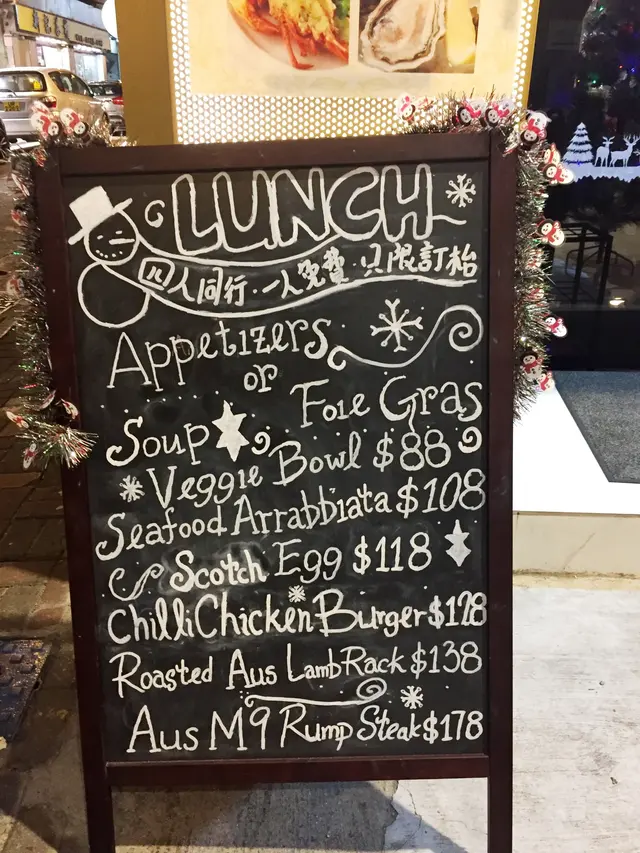 LUNCH
四人同行·一人免費·只限訂枱
Appetizers
or
Foie Gras
Soup
Veggie Bowl $88
Seafood Arrabbiata $108
Scotch Egg $118
Chilli Chicken Burger $128
Roasted Aus Lamb Rack $138
Aus M9 Rump Steak $178